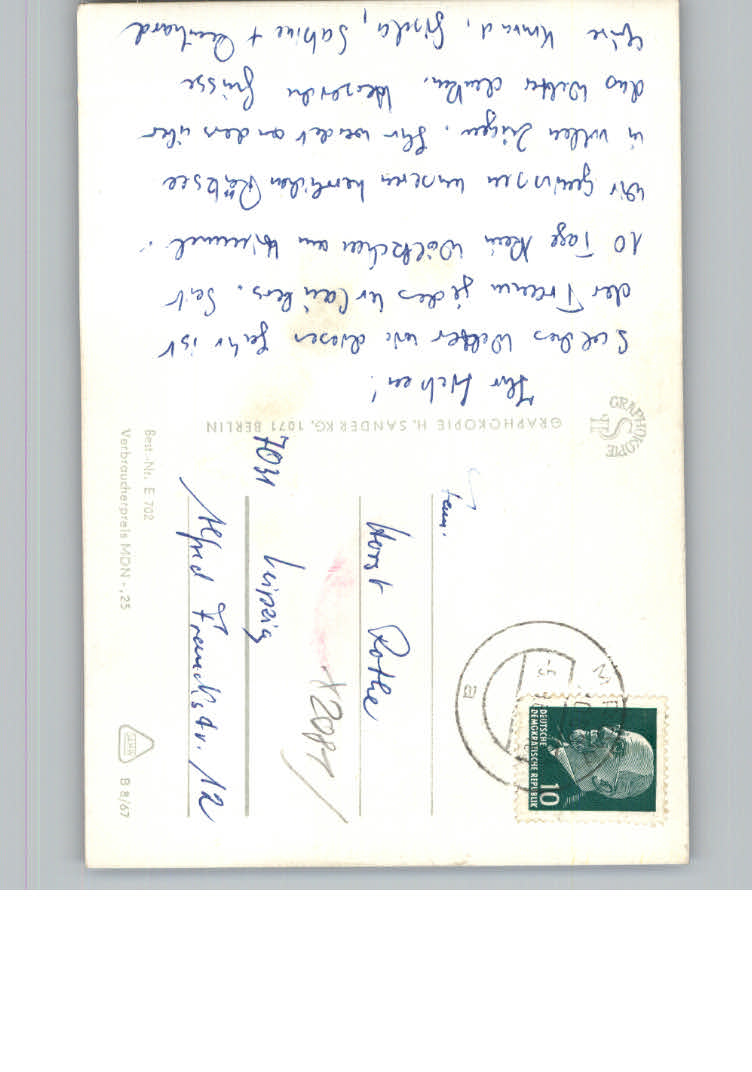 Ihr Lieben!
Solches Wetter wie dieses Jahr ist
der Traum jedes Urlaubers. Seit
10 Tage kein Wölkchen am Himmel.
Wir genissen unseren herrlichen Rätzsee
in vollen Zügen. Ihr werdet anders über
das Wetter denken. Grüsse
Eure Konrad, Gisela, Sabine +
GRAPHOKOPIE H. SANDER KG, 1071 BERLIN
GRAPHOKOPIE
HS
Fam.
Horst Rothe
7031 Leipzig
Alfred Franckstr. 12
Best.-Nr. E 702
Verbraucherpreis MDN -,25
B 8/67
DEUTSCHE
DEMOKRATISCHE REPUBLIK
10